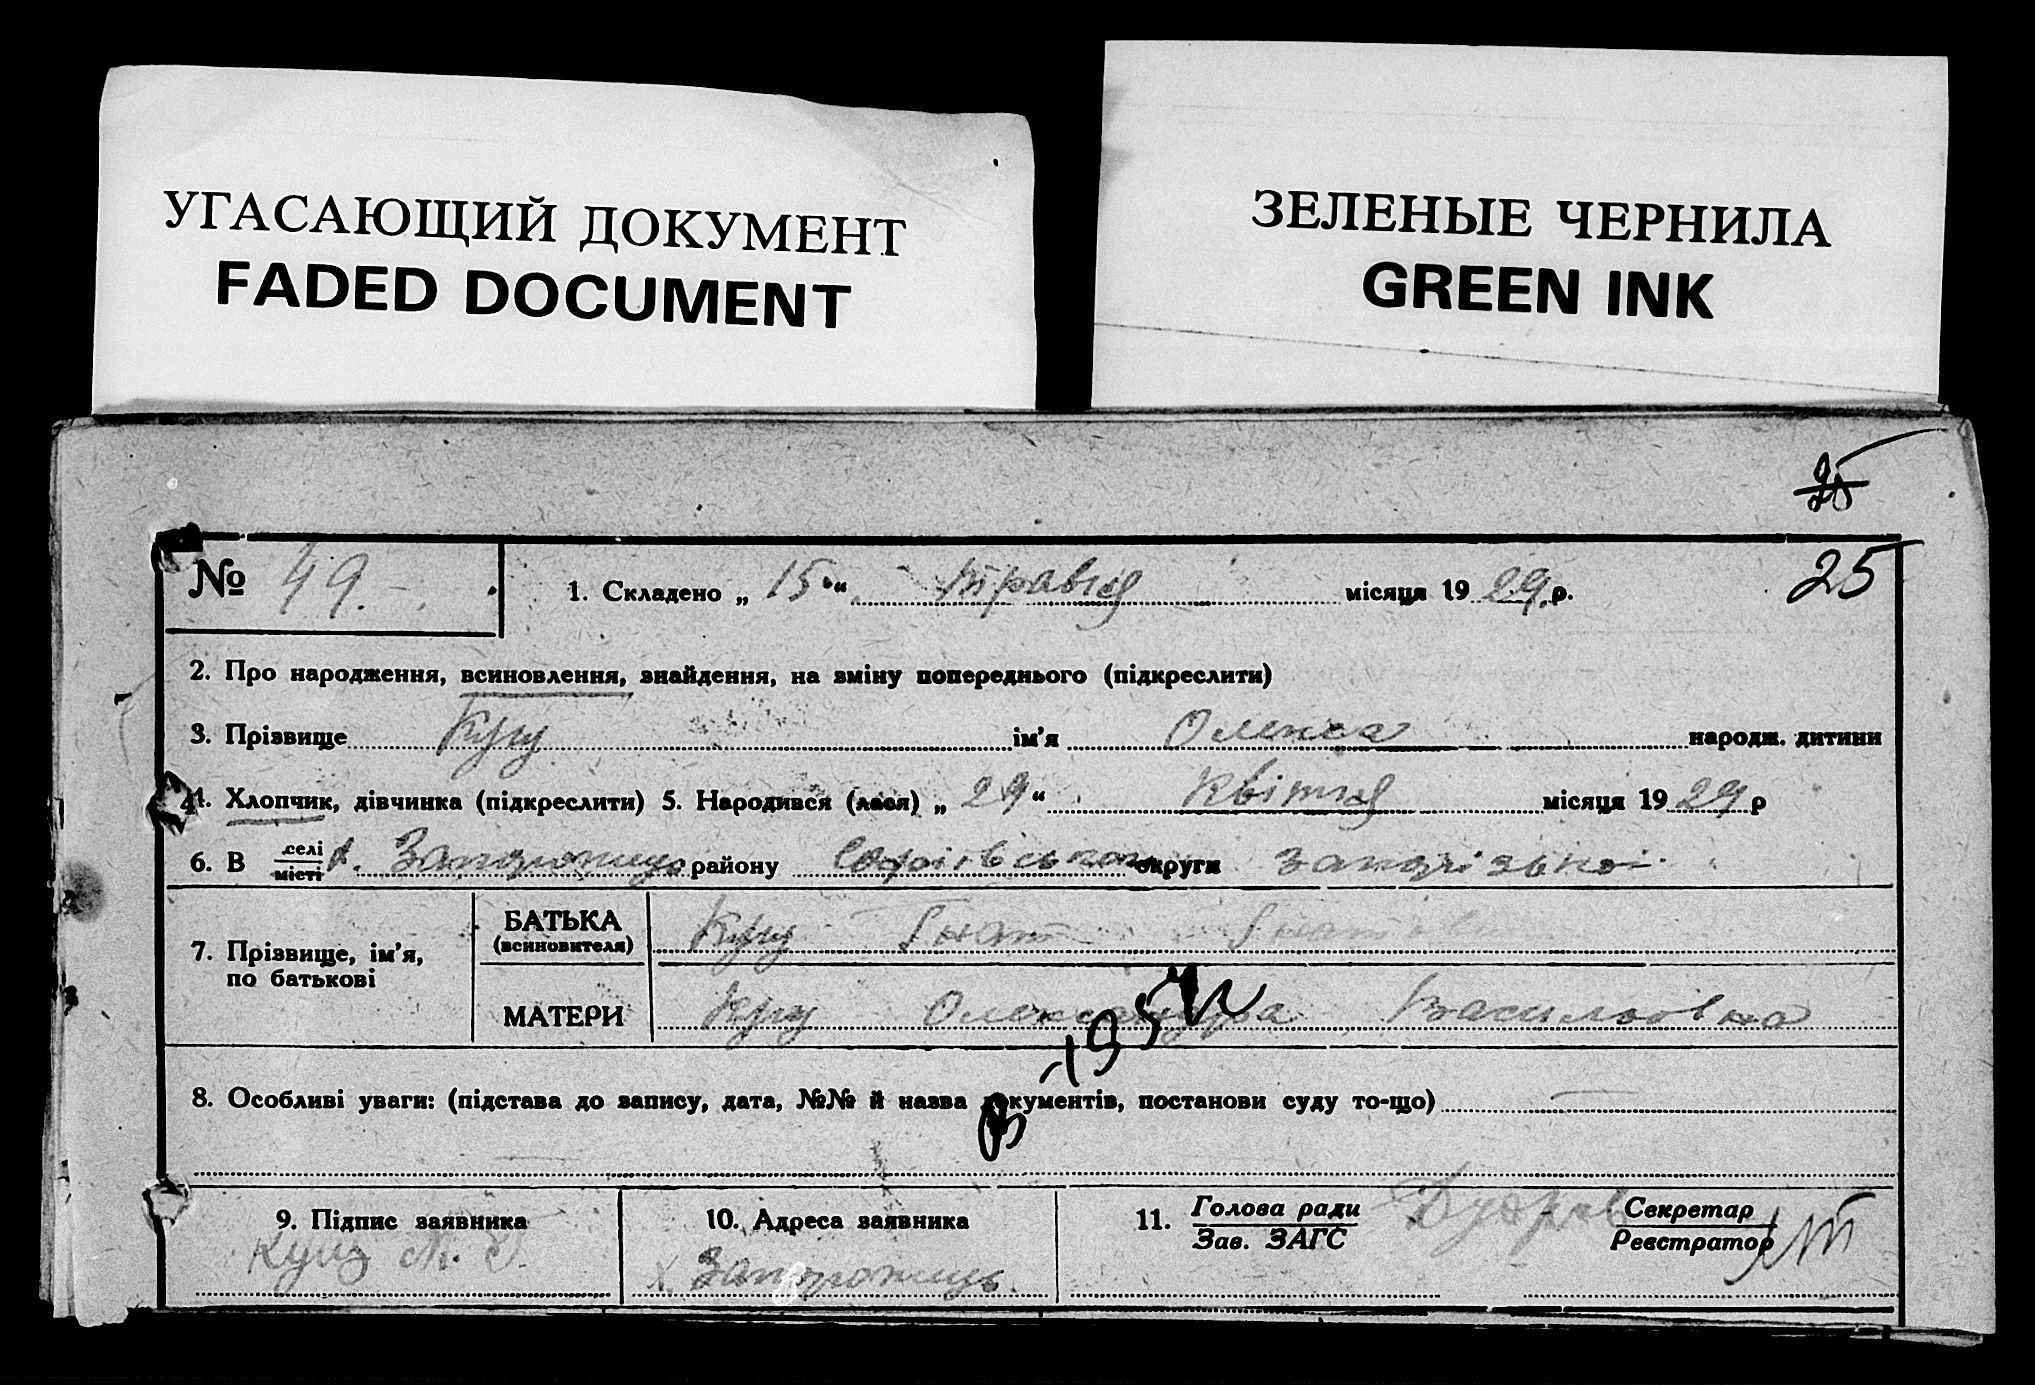 УГАСАЮЩИЙ ДОКУМЕНТ
FADED DOCUMENT
ЗЕЛЕНЫЕ ЧЕРНИЛА
GREEN INK
25
№ 49. 1. Складено „ 15 “ травня місяця 19 29 р.
2. Про народження, всиновлення, знайдення, на зміну попереднього (підкреслити)
3. Прізвище ім'я Олекса народж. дитини
4. Хлопчик, дівчинка (підкреслити) 5. Народився (лася) „ 29 “ квітня місяця 19 29 р
6. В селі місті х. Запорожець району Софіівського округи запорізької
7. Прізвище, ім'я, по батькові
БАТЬКА (всиновителя) Гнат
МАТЕРИ Олександра Василівна
8. Особливі уваги: (підстава до запису, дата, №№ й назва документів, постанови суду то-що)
9. Підпис заявника
10. Адреса заявника
х. Запорожець.
11. Голова ради Зав. ЗАГС
Секретар Реєстратор